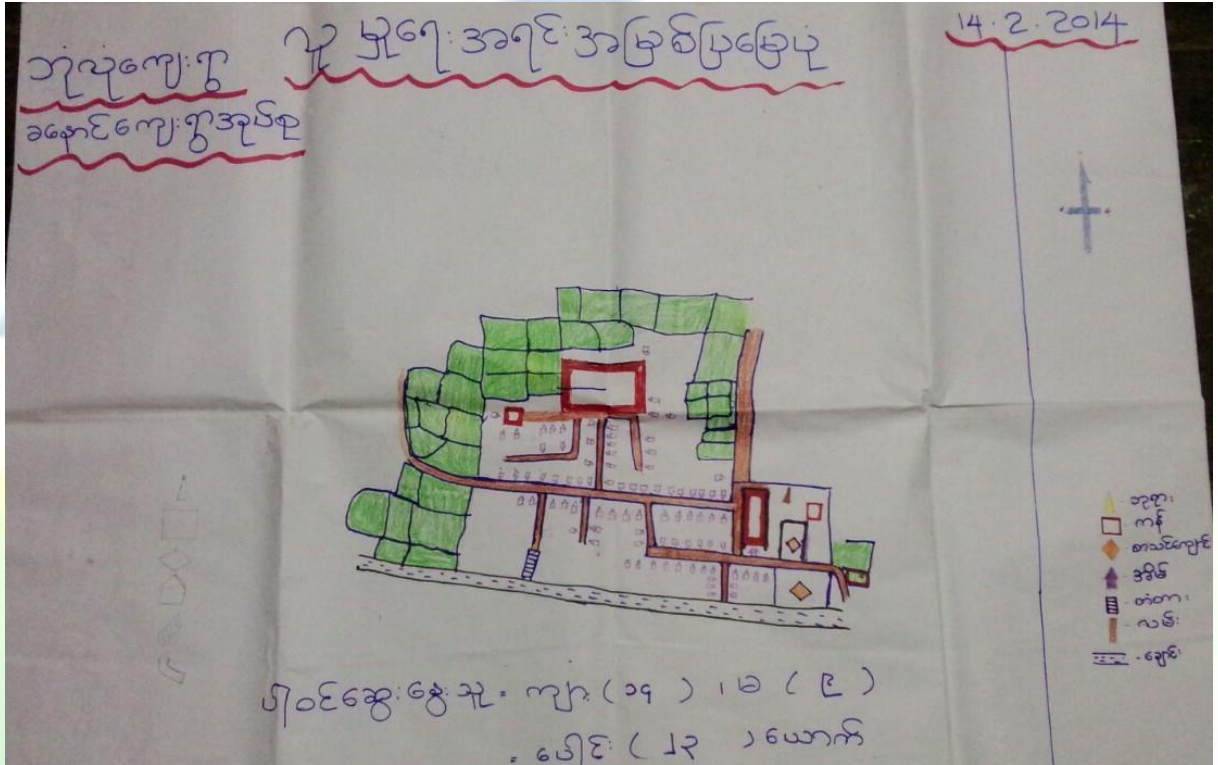 ဘုံလုံကျေးရွာ
လူမှုရေးအရင်းအမြစ်ပြမြေပုံ
14.2.2014
ခနောင်ကျေးရွာအုပ်စု
- ဘုရား
- ကန်
- စာသင်ကျောင်း
- အိမ်
- တံတား
- လမ်း
- ချောင်း
ပါဝင်ဆွေးနွေးသူ = ကျား (၁၄) ၊ မ (၉)
= ပေါင်း (၂၃) ယောက်